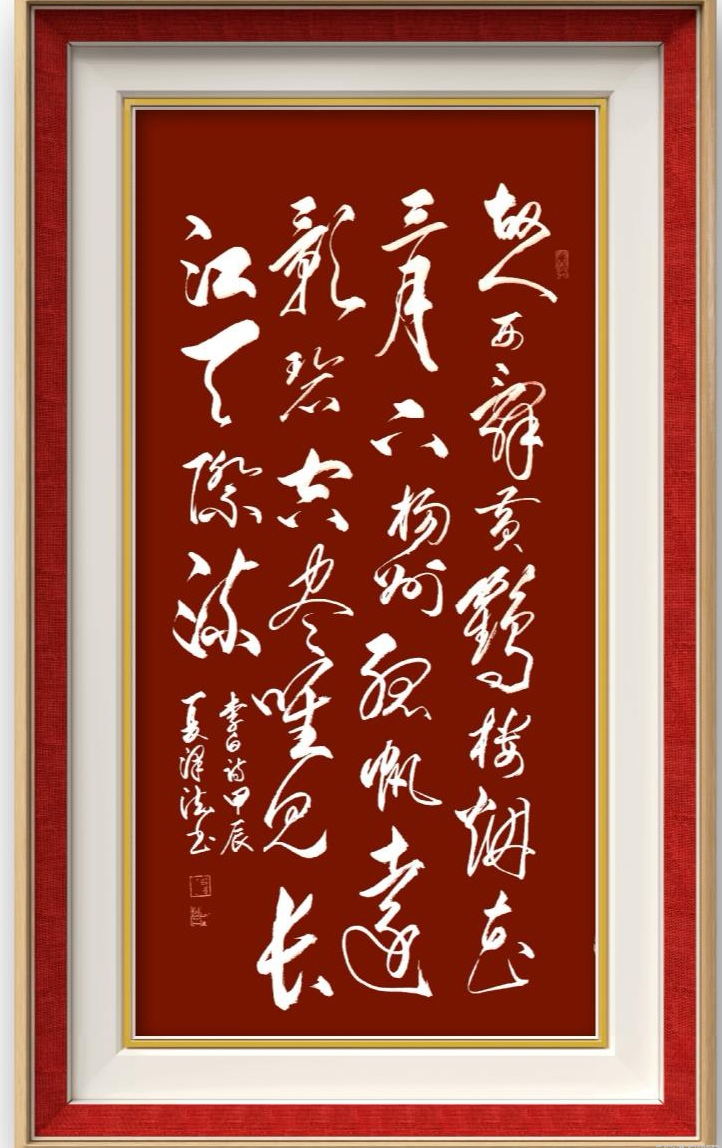 故人西辭黄鶴楼烟花
三月下杨州孤帆遠
影碧空尽唯见长
江天際流
李白诗甲辰
夏泽法书